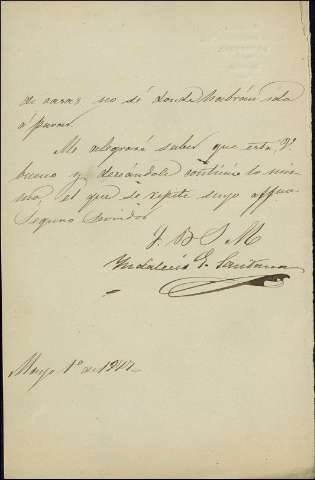 de casas no sé donde habrán ido
á parar.
Me alegraré saber que esta V.
bueno y deseándole continúe lo mis-
mo, el que se repite suyo affmo
Seguro Servidor
Q B S M
Yndalecio E. Santana
Mayo 1º de